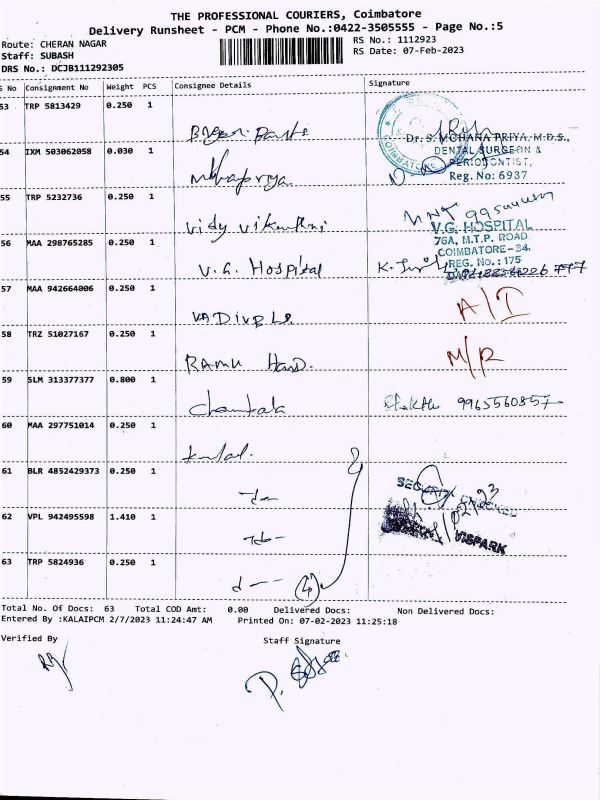 THE PROFESSIONAL COURIERS, Coimbatore
Delivery Runsheet - PCM - Phone No.:0422-3505555 - Page No.:5
Route: CHERAN NAGAR
RS No.: 1112923
Staff: SUBASH
RS Date: 07-Feb-2023
DRS No.: DCJB111292305
S No Consignment No Weight PCS Consignee Details Signature
53 TRP 5813429 0.250 1
Dr. S. MOHANA PRIYA, M.D.S.,
54 IXM 503062058 0.030 1
DENTAL SURGEON &
PERIODONTIST,
Reg. No: 6937
55 TRP 5232736 0.250 1
V.G. HOSPITAL
56 MAA 298765285 0.250 1
76A, M.T.P. ROAD
COIMBATORE-34.
REG. No.: 175
V.G. Hospital
57 MAA 942664006 0.250 1
VADIVELU
A/I
58 TRZ 51027167 0.250 1
RAMU
M/R
59 SLM 313377377 0.800 1
9965560857
60 MAA 297751014 0.250 1
61 BLR 4852429373 0.250 1
SECURITY CHECKED
62 VPL 942495598 1.410 1
VISPARK
63 TRP 5824936 0.250 1
4
Total No. Of Docs: 63 Total COD Amt: 0.00 Delivered Docs: Non Delivered Docs:
Entered By :KALAIPCM 2/7/2023 11:24:47 AM Printed On: 07-02-2023 11:25:18
Verified By Staff Signature